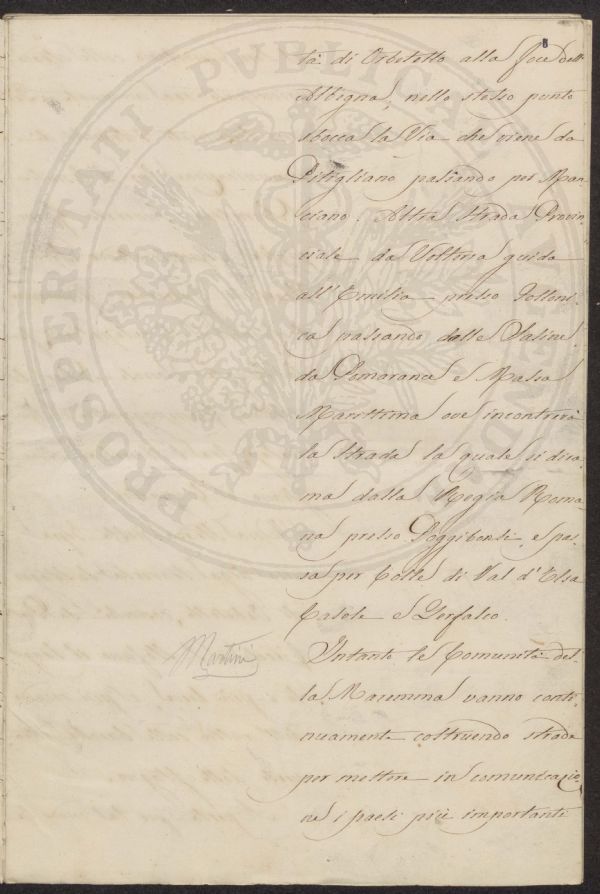 8
tà di Orbetello alla foce dell'
Albegna; nello stesso punto
sbocca la Via che viene da
Pitigliano passando per Man-
ciano. Altra Strada Provin-
ciale da Volterra guida
all'Emilia presso Folloni-
ca passando dalle Saline,
da Pomarance e Massa
Marittima ove incontrerà
la Strada la quale si dira-
ma dalla Regia Roma-
na presso Poggibonsi, e pas-
sa per Colle di Val d'Elsa
Casole e Gerfalco.
Intanto le Comunità del-
la Maremma vanno conti-
nuamente costruendo strade
per mettere in comunicazio-
ne i paesi più importanti
Martini
PROSPERITATI PVBLICAE AVGENDAE